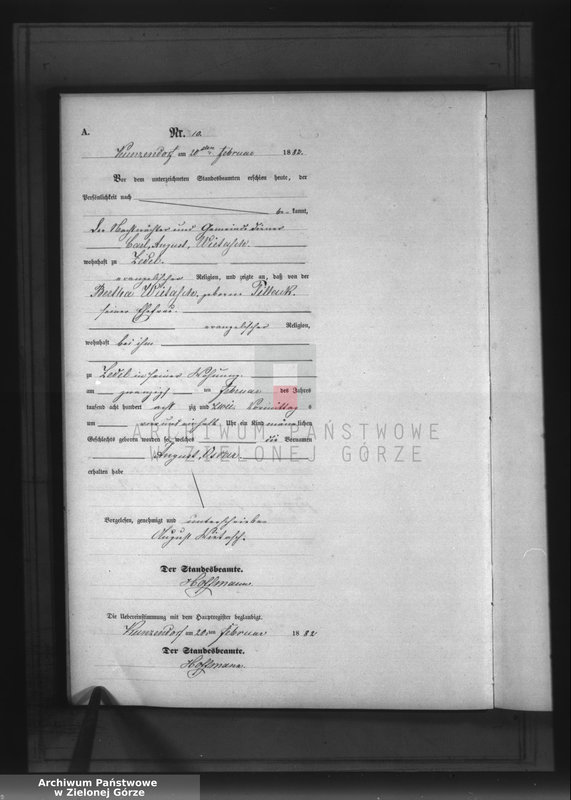 A.
Nr. 10.
Kunzendorf am 20ten Februar 1882.
Vor dem unterzeichneten Standesbeamten erschien heute, der
Persönlichkeit nach
be= kannt,
der Nachtwächter und Gemeindediener
Carl, August,
wohnhaft zu Zedel.
evangelischer Religion, und zeigte an, daß von der
Bertha geborene
seiner Ehefrau.
evangelischer Religion,
wohnhaft bei ihm
zu Zedel in seiner Wohnung.
am zwanzig ten Februar des Jahres
tausend acht hundert acht zig und zwei Vormittag s
um Uhr ein Kind männlichen
Geschlechts geboren worden sei, welches die Vornamen
August, Oscar.
erhalten habe
Vorgelesen, genehmigt und unterschrieben
August
Der Standesbeamte.
Hoffmann.
Die Uebereinstimmung mit dem Hauptregister beglaubigt.
Kunzendorf am 20ten Februar 1882
Der Standesbeamte.
Hoffmann.
ARCHIWUM PAŃSTWOWE
W ZIELONEJ GÓRZE
Archiwum Państwowe
w Zielonej Górze